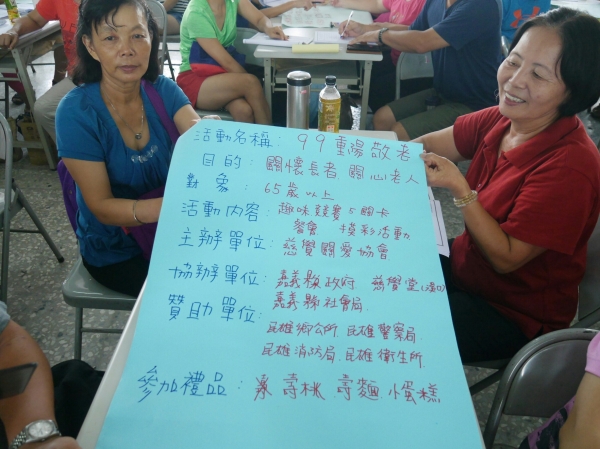 活動名稱：99重陽敬老
目的：關懷長者 關心老人
對象：65歲以上
活動內容：趣味競賽5關卡
餐會 摸彩活動
主辦單位：慈覺關愛協會
協辦單位：嘉義縣政府 慈覺堂
嘉義縣社會局
贊助單位：
民雄鄉公所 民雄警察局
民雄消防局 民雄衛生所
參加禮品： 壽桃 壽麵 小蛋糕